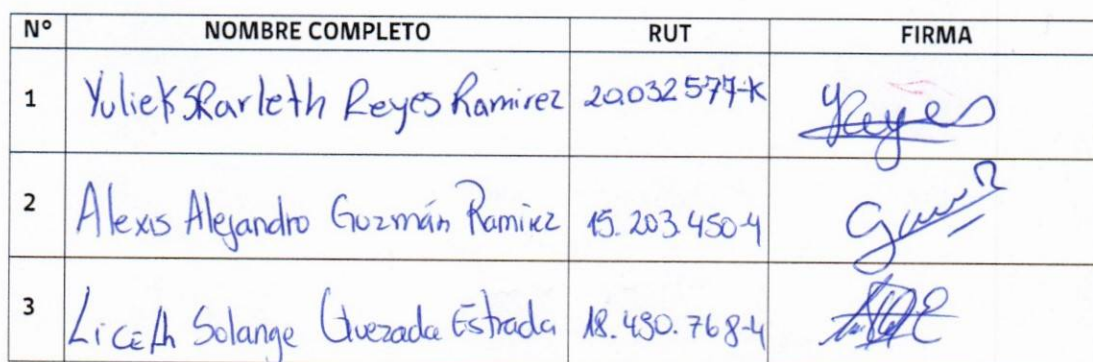 N° NOMBRE COMPLETO RUT FIRMA
1 Yuliek Skarleth Reyes Ramirez 20.032577-K Reyes
2 Alexis Alejandro Guzmán Ramirez 15.203.450-4
3 Liceth Solange Quezada Estrada 18.490.768-4